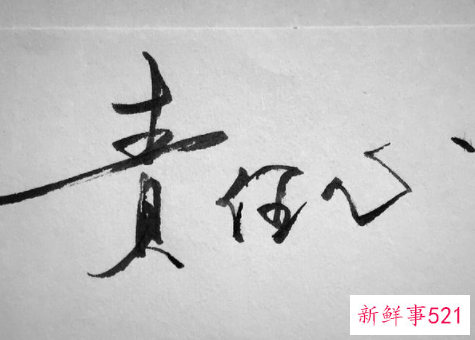 责任心
新鲜事521